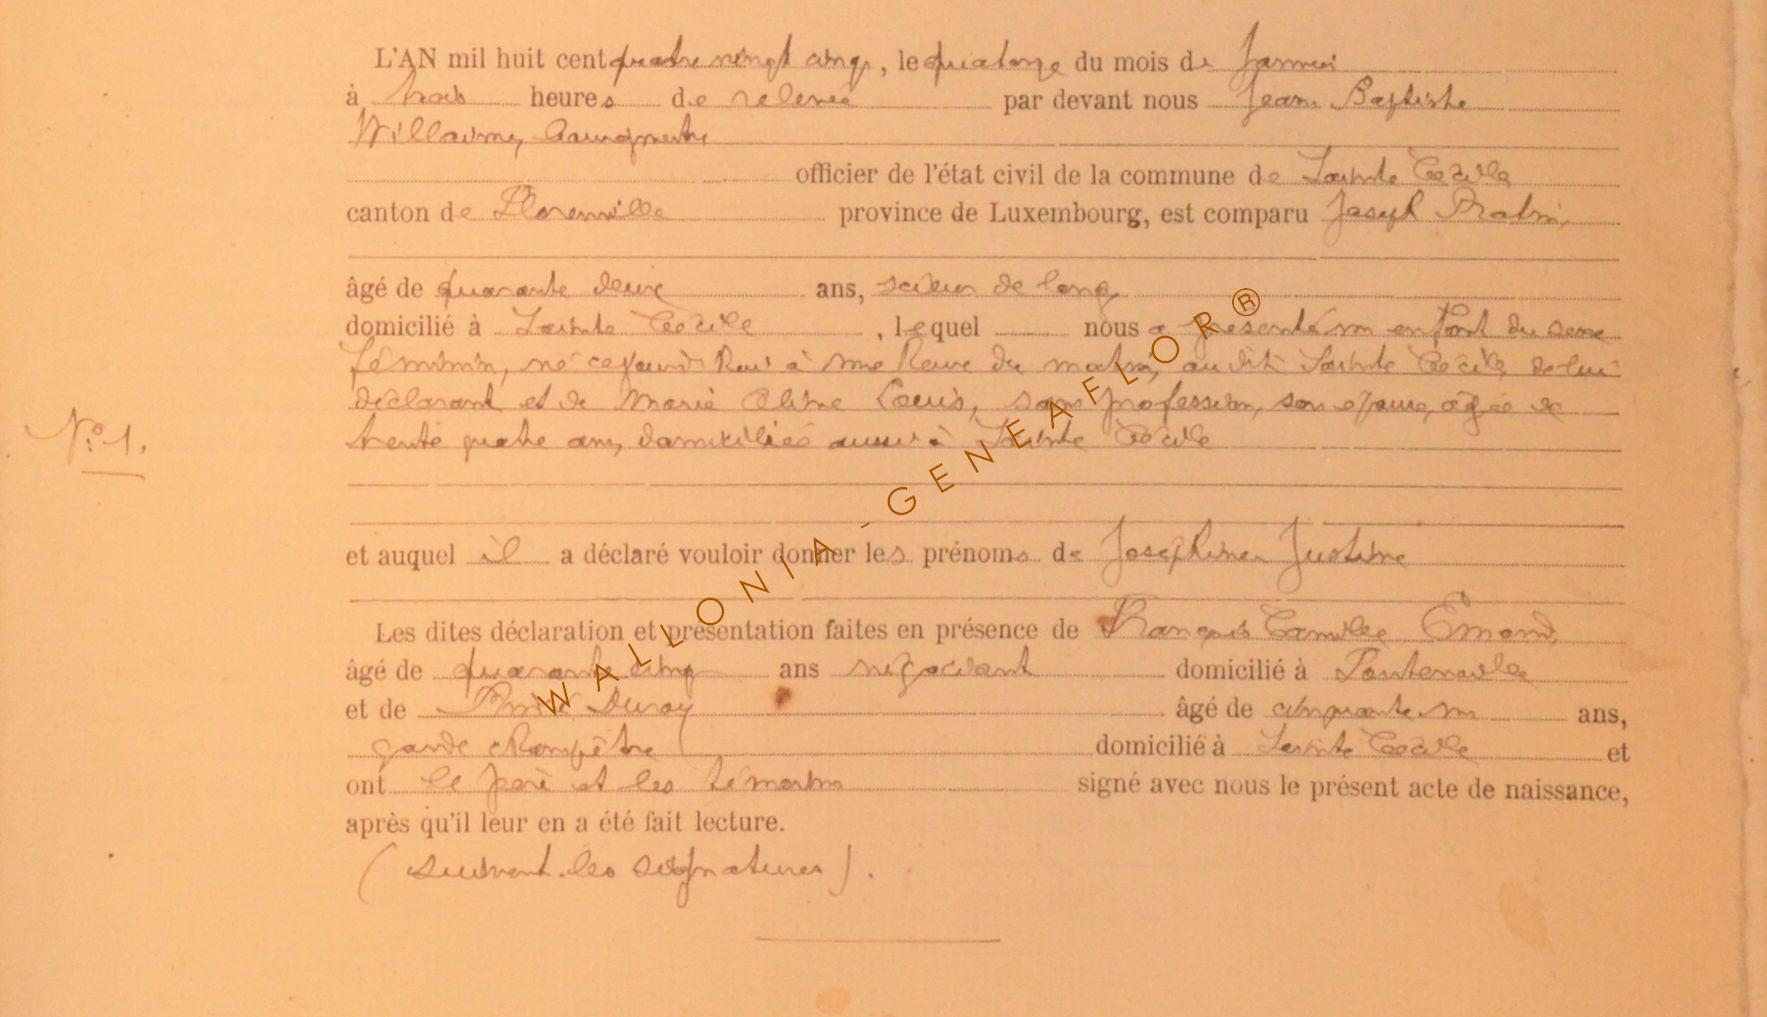 L'AN mil huit cent quatre vingt cinq, le quatorze du mois de Janvier
à trois heures de relevée par devant nous Jean Baptiste
Willaime, Bourgmestre
officier de l'état civil de la commune de Sainte Cécile
canton de Florenville province de Luxembourg, est comparu Joseph
âgé de quarante deux ans, scieur de long
domicilié à Sainte Cécile, lequel nous a présenté un enfant du sexe
féminin, né ce jourd'hui à une heure du matin, au dit Sainte Cécile de lui
déclarant et de Marie Céline Louis, sans profession, son épouse, âgée de
N° 1.
trente quatre ans, domiciliée aussi à Sainte Cécile
et auquel il a déclaré vouloir donner les prénoms de Joséphine Justine
Les dites déclaration et présentation faites en présence de François Camille Emond,
âgé de quarante cinq ans négociant domicilié à Fontenoille
et de Duroy âgé de cinquante un ans,
garde champêtre domicilié à Sainte Cécile et
ont le père et les témoins signé avec nous le présent acte de naissance,
après qu'il leur en a été fait lecture.
(suivent les signatures).
WALLONIA-GENEAFLOR®